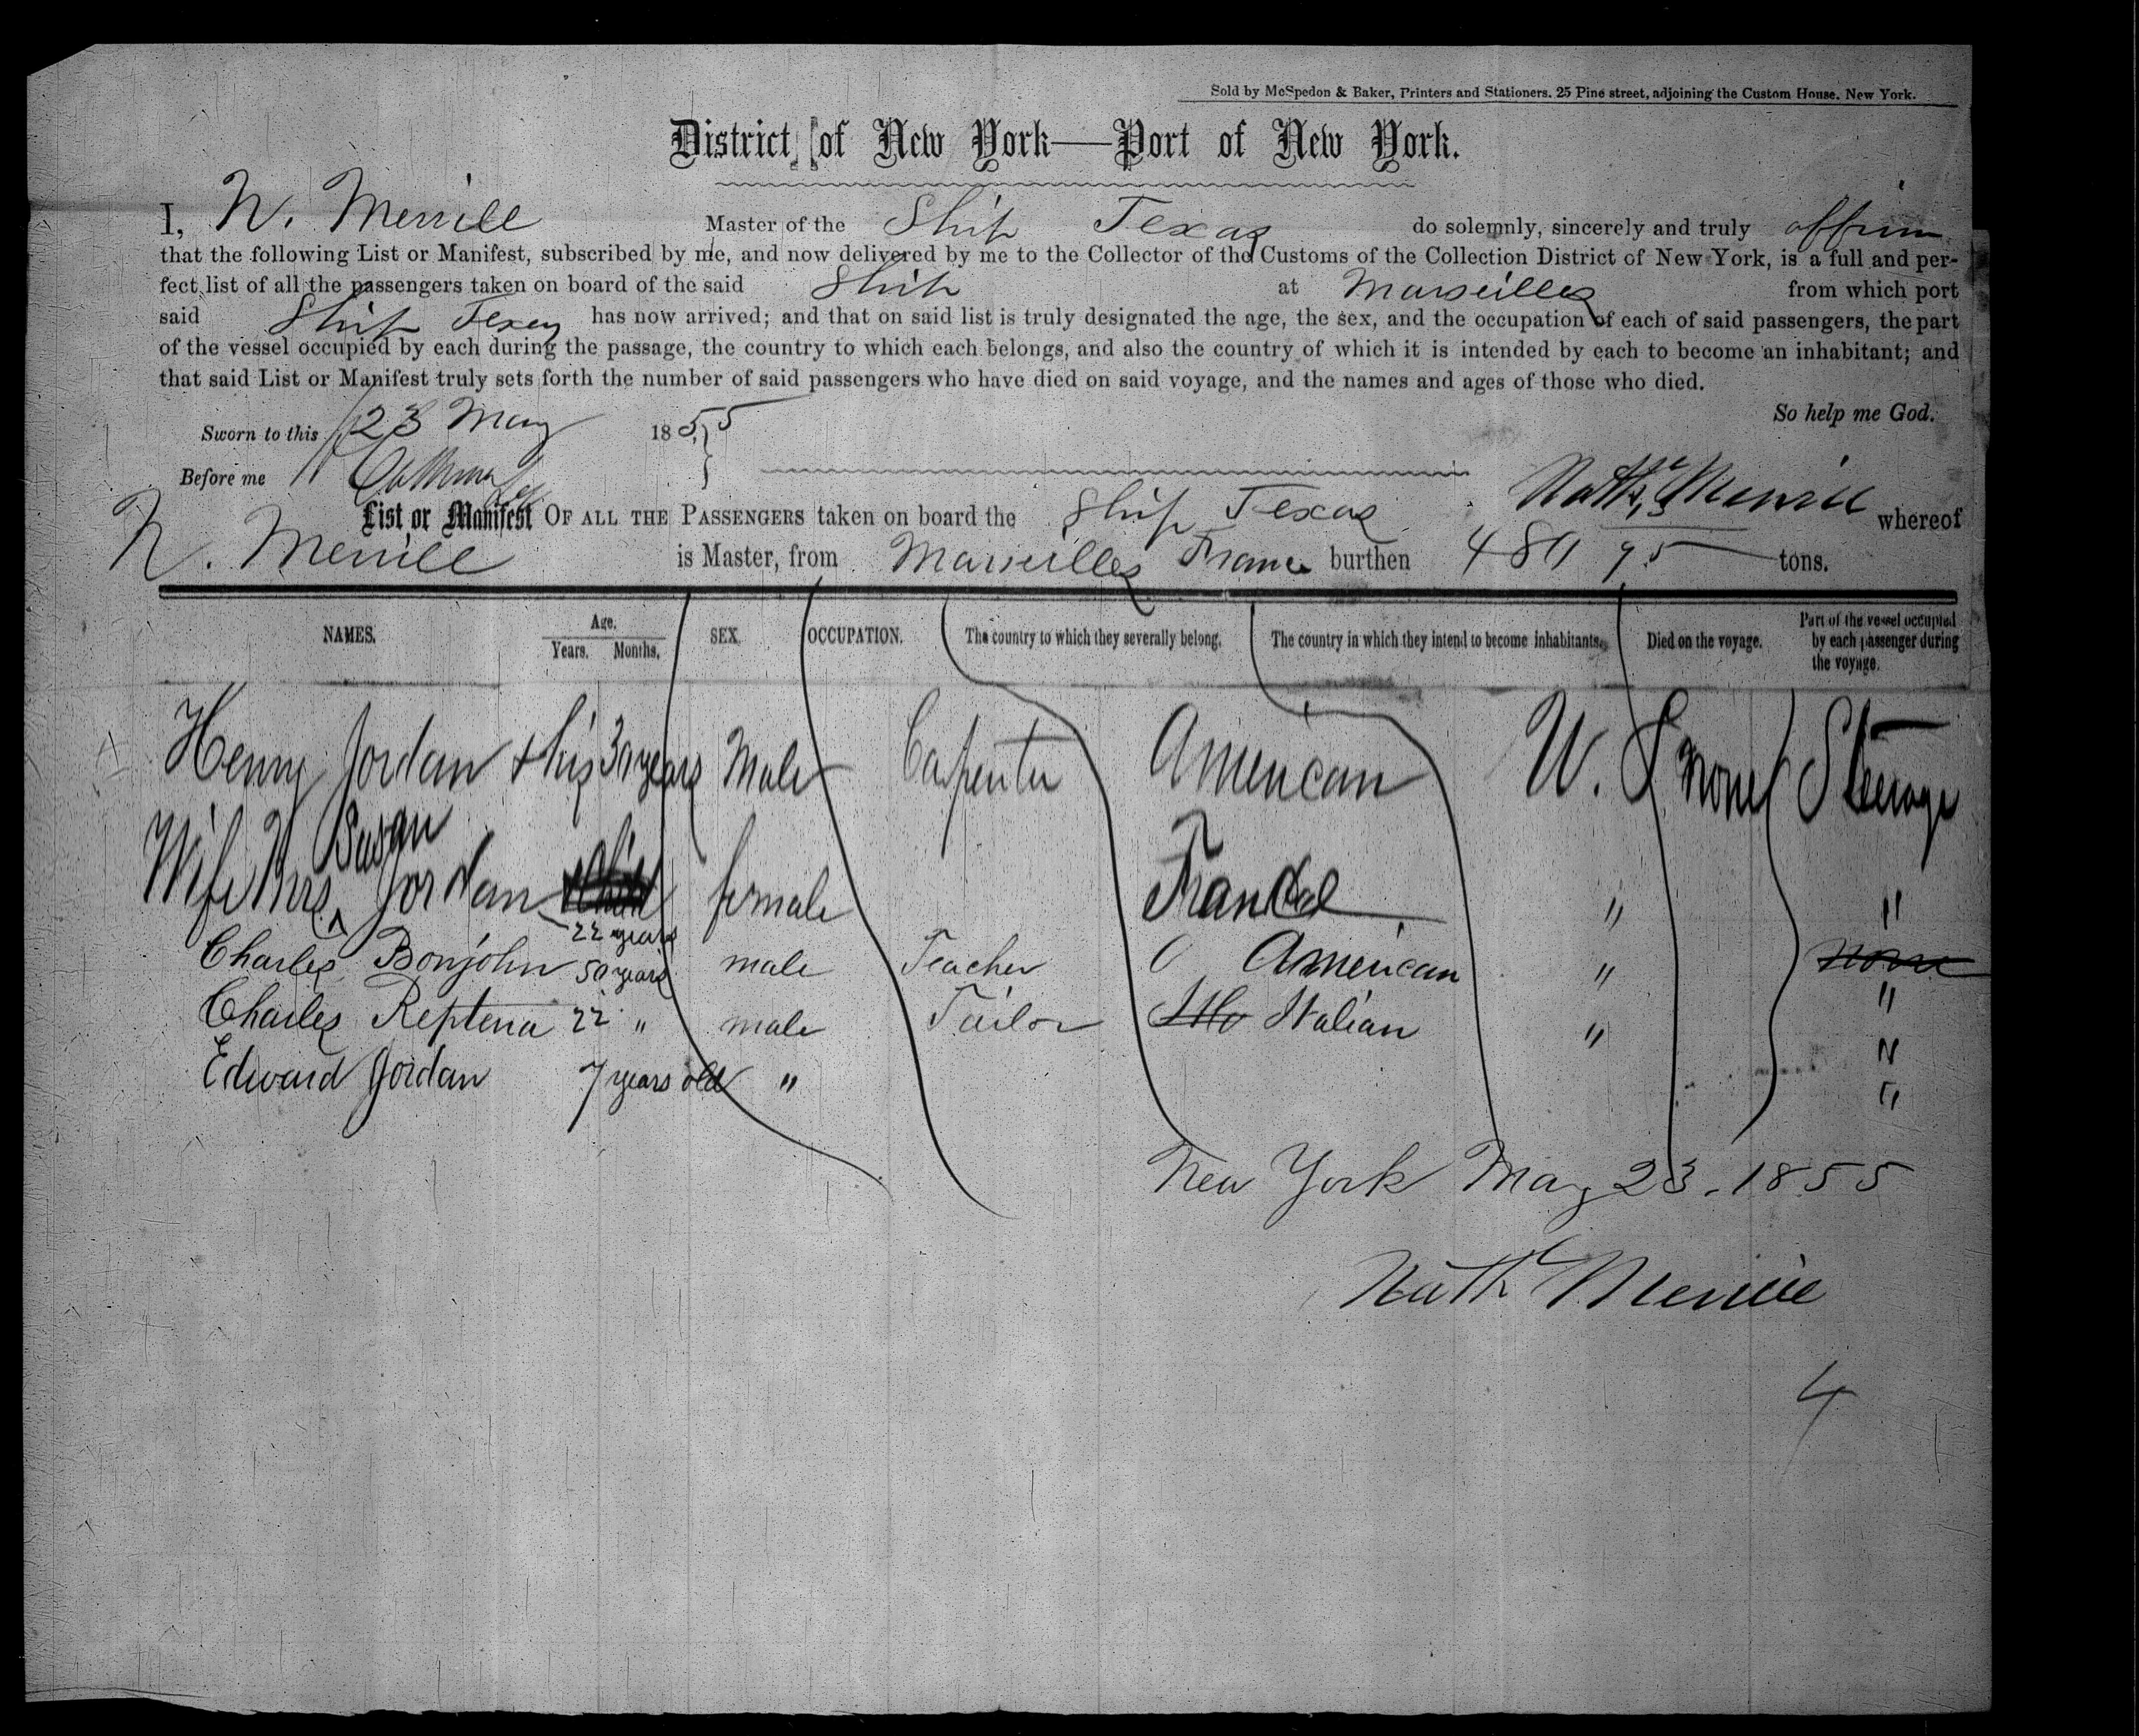 Sold by McSpedon & Baker, Printers and Stationers. 25 Pine street, adjoining the Custom House. New York.
District of New York—Port of New York.
I, N. Merrill Master of the Ship Texas do solemnly, sincerely and truly affirm
that the following List or Manifest, subscribed by me, and now delivered by me to the Collector of the Customs of the Collection District of New York, is a full and per-
fect list of all the passengers taken on board of the said Ship at Marseilles from which port
said Ship Texas has now arrived; and that on said list is truly designated the age, the sex, and the occupation of each of said passengers, the part
of the vessel occupied by each during the passage, the country to which each belongs, and also the country of which it is intended by each to become an inhabitant; and
that said List or Manifest truly sets forth the number of said passengers who have died on said voyage, and the names and ages of those who died.
So help me God.
Sworn to this 23 May 1855
Before me
Nathl Merrill
List or Manifest OF ALL THE PASSENGERS taken on board the Ship Texas whereof
N. Merrill is Master, from Marseilles France burthen 95 tons.
NAMES. Age. Years. Months. SEX. OCCUPATION. The country to which they severally belong. The country in which they intend to become inhabitants. Died on the voyage. Part of the vessel occupied by each passenger during the voyage.
Henry Jordan + his 30 years Male Carpenter American U. S none Steerage
Susan
Wife Mrs. Jordan female France " "
22 years
Charles Bonjohn 50 years male Teacher American " none "
Charles Reptena 22 " male Tailor Italian " "
Edward Jordan 7 years old " "
New York May 23. 1855
Nathl Merrill
4